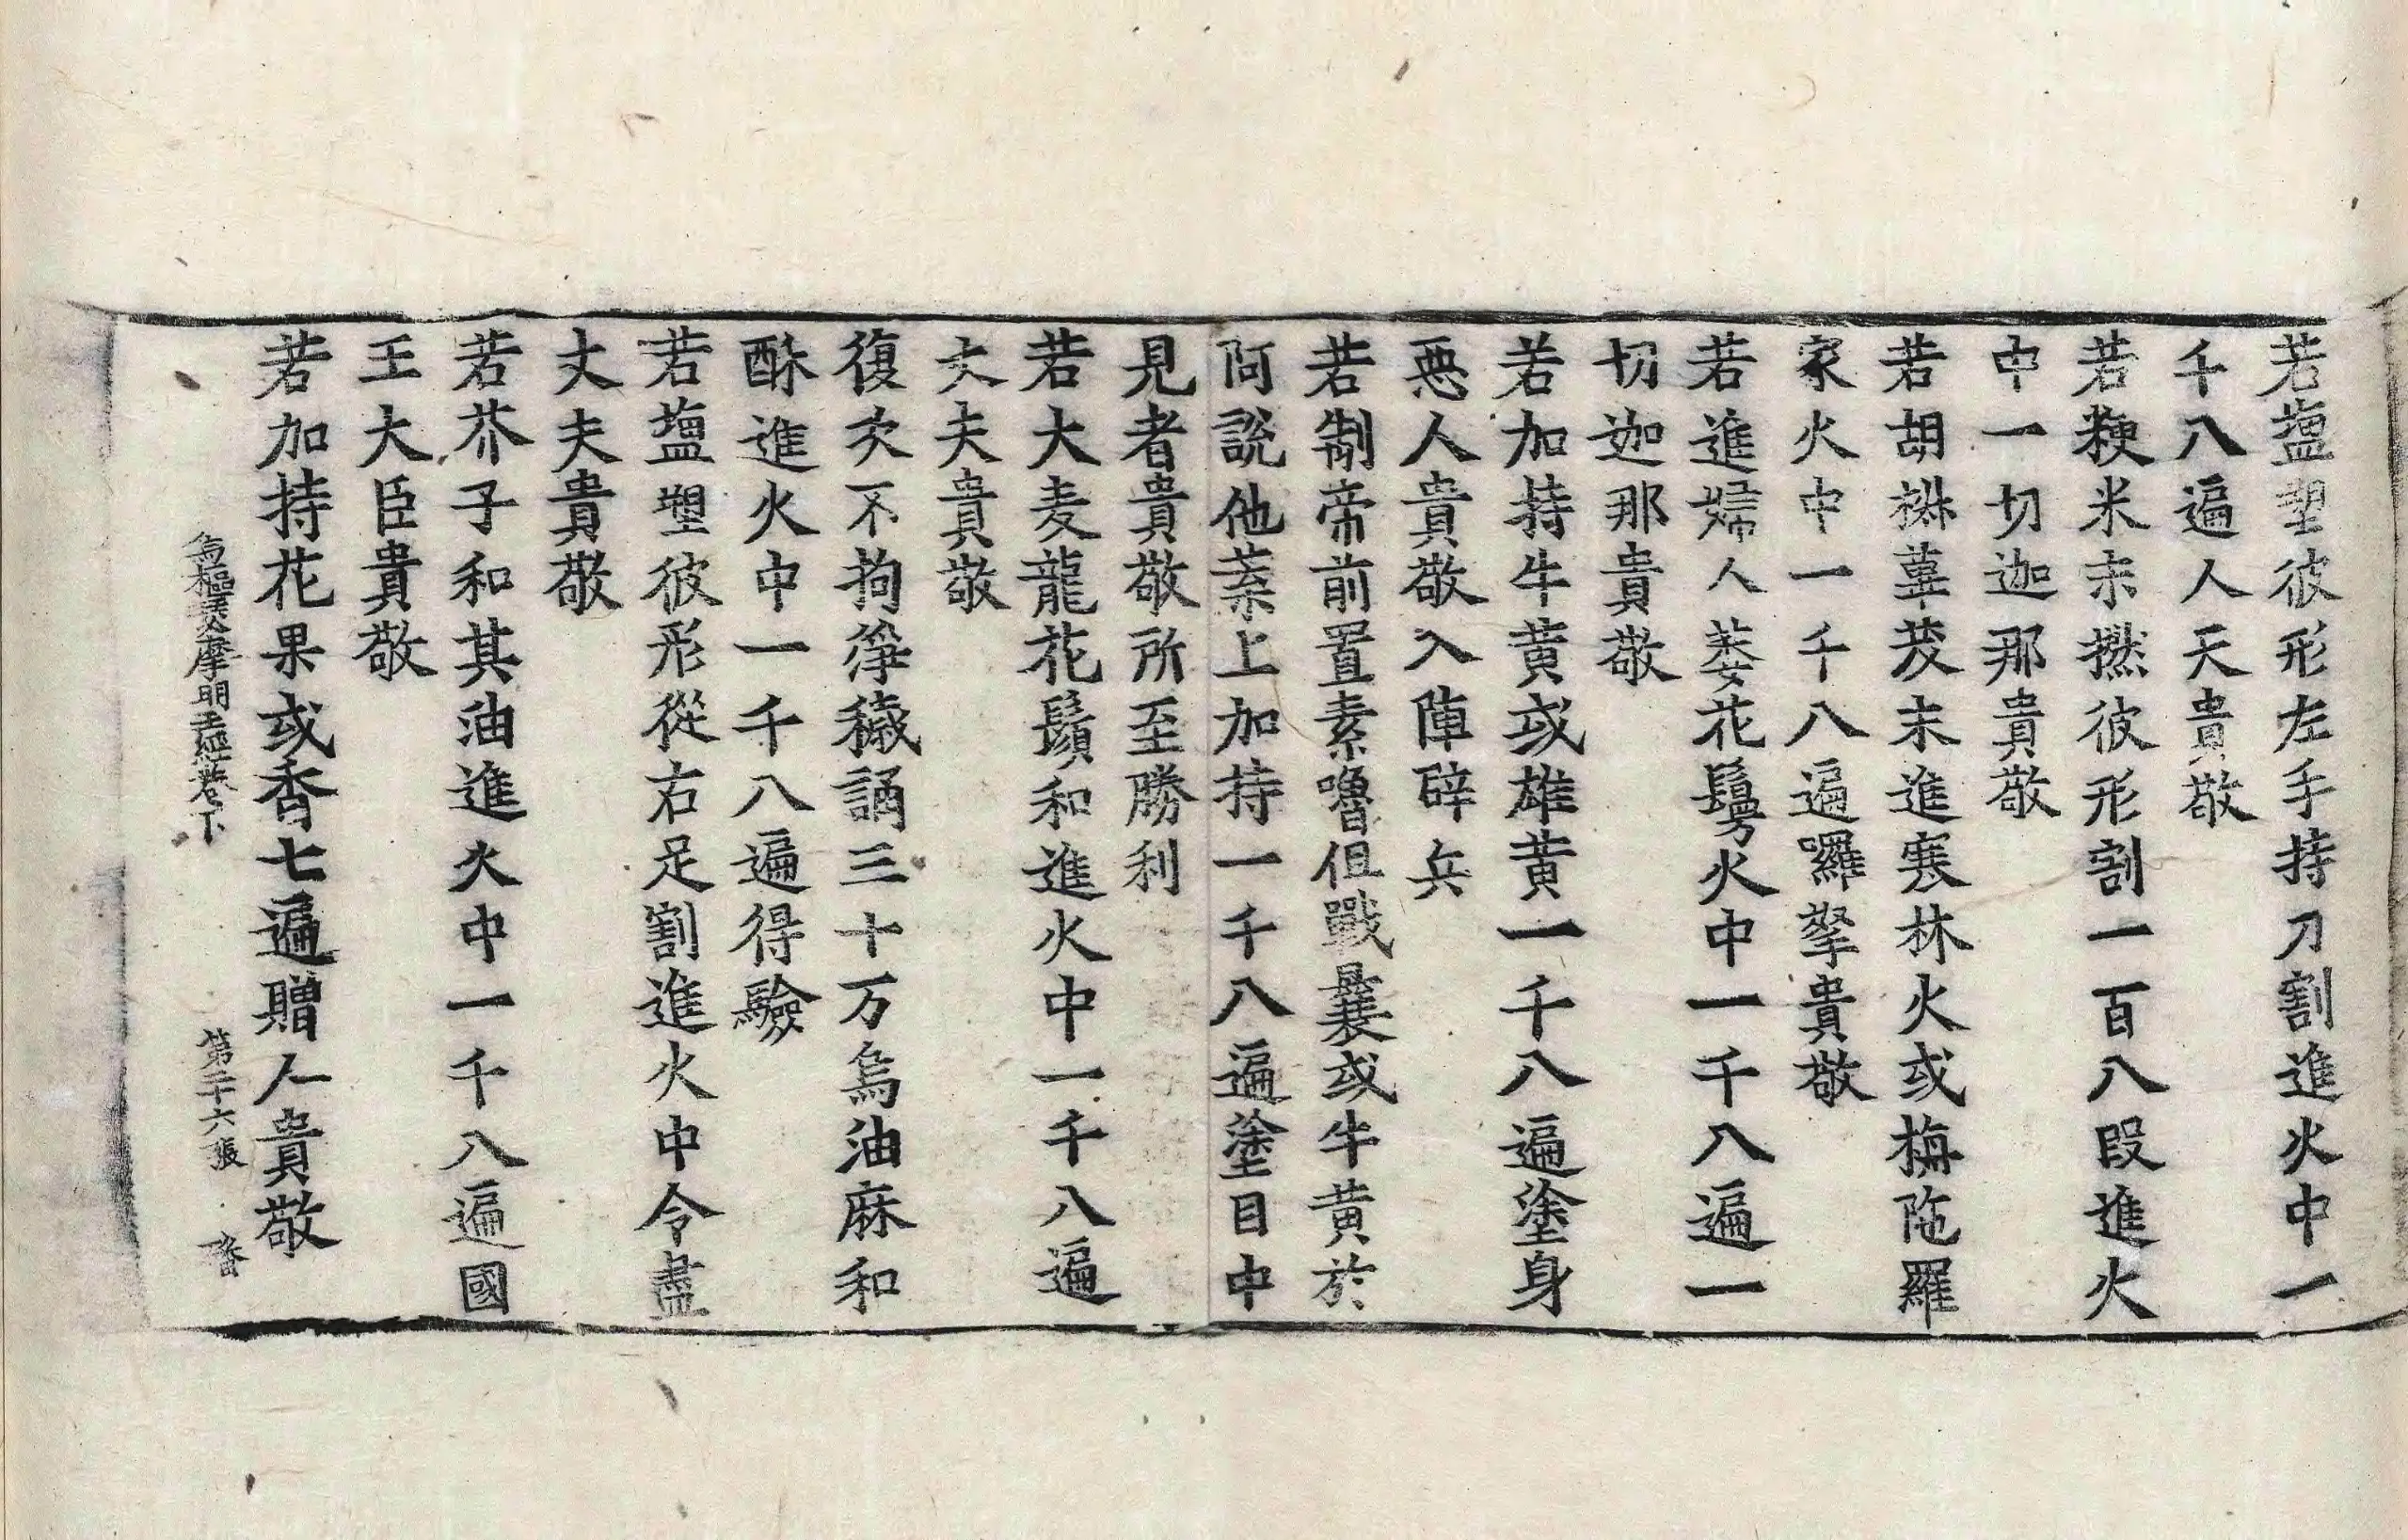 若塩塑彼形左手持刀割進火中一
千八遍人天貴敬
若粳米末撚彼形割一百八段進火
中一切迦那貴敬
若胡椒蓽茇末進寒林火或栴陁羅
家火中一千八遍囉拏貴敬
若進婦人萎花鬘火中一千八遍一
切迦那貴敬
若加持牛黄或雄黄一千八遍塗身
惡人貴敬入陣辟兵
若制帝前置素嚕但戰曩或牛黄於
阿說他葉上加持一千八遍塗目中
見者貴敬所至勝利
若大麦龍花鬚和進火中一千八遍
丈夫貴敬
復次不拘淨穢誦三十万烏油麻和
酥進火中一千八遍得驗
若塩塑彼形從右足割進火中令盡
丈夫貴敬
若芥子和其油進火中一千八遍國
王大臣貴敬
若加持花果或香七遍贈人貴敬
樞瑟摩明王經卷下 第二十六張